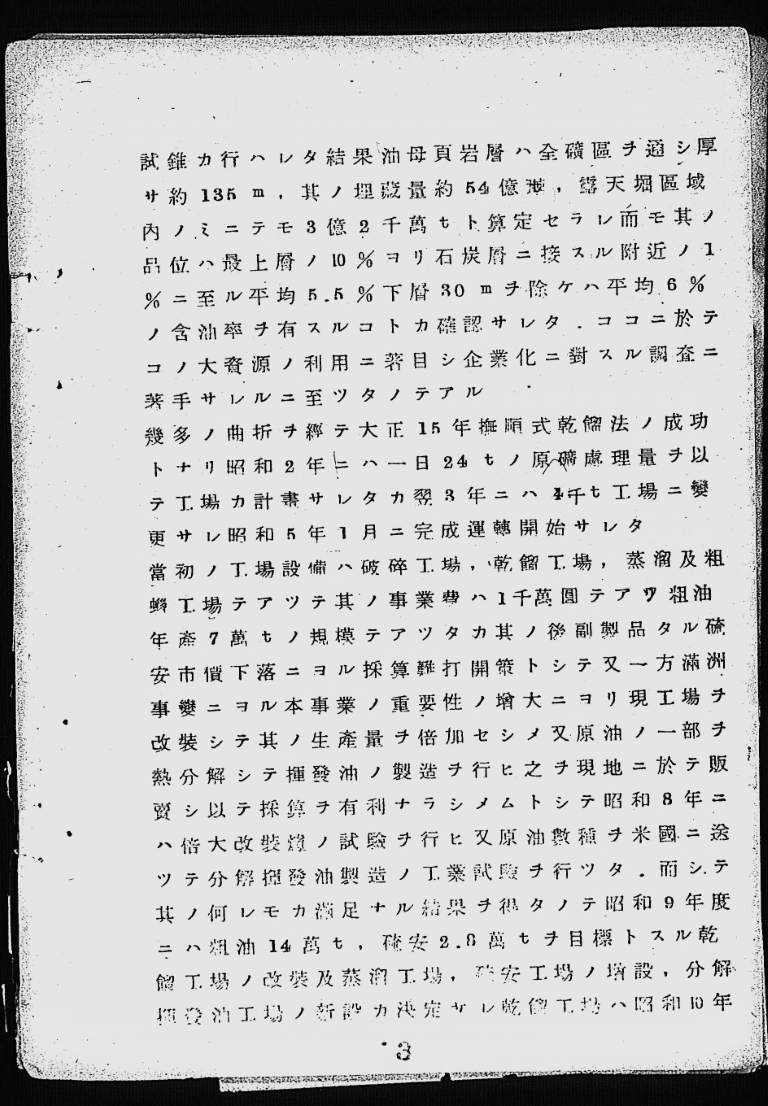 試錐カ行ハレタ結果油母頁岩層ハ全礦區ヲ通シ厚
サ約135m,其ノ埋藏量約54億瓲,露天堀區域
内ノミニテモ3億2千萬tト算定セラレ而モ其ノ
品位ハ最上層ノ10%ヨリ石炭層ニ接スル附近ノ1
%ニ至ル平均5.5%下層30mヲ除ケハ平均6%
ノ含油率ヲ有スルコトカ確認サレタ.ココニ於テ
コノ大資源ノ利用ニ著目シ企業化ニ對スル調査ニ
著手サレルニ至ツタノテアル
幾多ノ曲折ヲ經テ大正15年撫順式乾餾法ノ成功
トナリ昭和2年ニハ一日24tノ原礦處理量ヲ以
テ工場カ計畫サレタカ翌3年ニハ4千t工場ニ變
更サレ昭和5年1月ニ完成運轉開始サレタ
當初ノ工場設備ハ破碎工場,乾餾工場,蒸溜及粗
蠟工場テアツテ其ノ事業費ハ1千萬圓テアリ粗油
年產7萬tノ規模テアツタカ其ノ後副製品タル硫
安市價下落ニヨル採算難打開策トシテ又一方滿洲
事變ニヨル本事業ノ重要性ノ增大ニヨリ現工場ヲ
改裝シテ其ノ生產量ヲ倍加セシメ又原油ノ一部ヲ
熱分解シテ揮發油ノ製造ヲ行ヒ之ヲ現地ニ於テ販
賣シ以テ採算ヲ有利ナラシメムトシテ昭和8年ニ
ハ倍大改裝爐ノ試驗ヲ行ヒ又原油數種ヲ米國ニ送
ツテ分解揮發油製造ノ工業試驗ヲ行ツタ.而シテ
其ノ何レモカ滿足ナル結果ヲ得タノテ昭和9年度
ニハ粗油14萬t,硫安2.8萬tヲ目標トスル乾
餾工場ノ改裝及蒸溜工場,硫安工場ノ增設,分解
揮發油工場ノ新設カ決定サレ乾餾工場ハ昭和10年
3